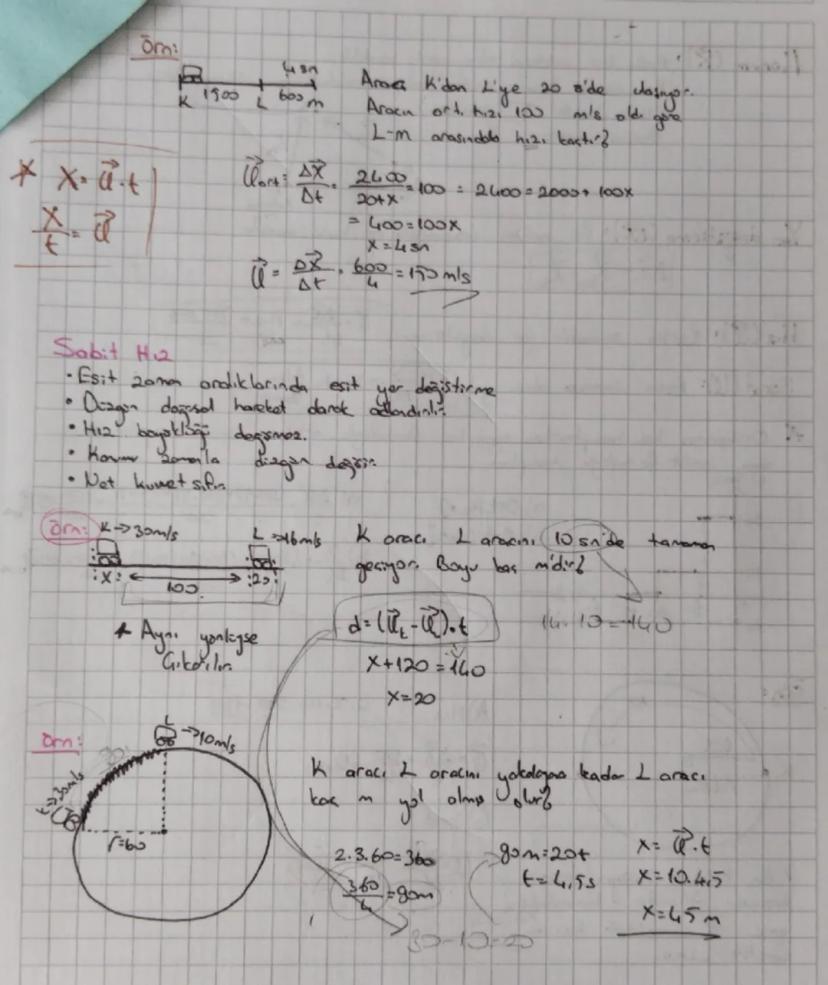 Örn:
4 sn
K 1800 L 600 m
Aracı K'dan L'ye 20 s'de ulaşıyor.
Aracın ort. hızı 100 m/s old. göre
L-m arasındaki hızı kaçtır?
* X = V.t
X/t = V
Vort = ΔX/Δt = 2400/20+x = 100 = 2400 = 2000 + 100x
= 400 = 100x
x = 4 sn
V = ΔX/Δt = 600/4 = 150 m/s
Sabit Hız
• Eşit zaman aralıklarında eşit yer değiştirme
• Düzgün doğrusal hareket olarak adlandırılır.
• Hız büyüklüğü değişmez.
• Konum zamanla düzgün değişir.
• Net kuvvet sıfır.
Örn: K → 30 m/s L → 16 m/s
:X: 100 :20:
K aracı L aracını 10 sn'de tamamen
geçiyor. Boyu kaç m'dir?
* Aynı yönlüyse
Çıkarılır.
d = (V - V).t
14.10 = 140
X + 120 = 140
X = 20
Örn:
L → 10 m/s
K → 30 m/s
r = 60
K aracı L aracını yakalayana kadar L aracı
kaç m yol almış olur?
2.3.60 = 360
360/4 = 90m
90m = 20t
t = 4,5s
30 - 10 = 20
X = V.t
X = 10.4,5
X = 45 m